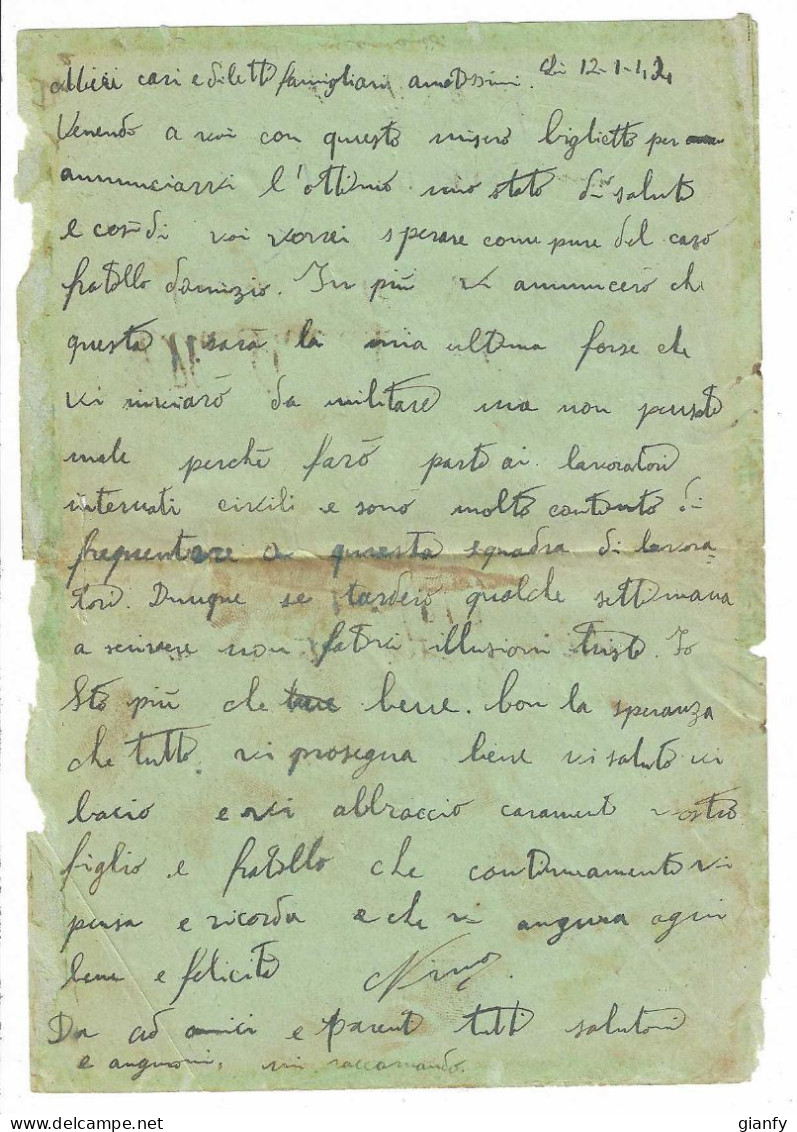 Miei cari e diletti famigliari amatissimi. Li 12-1-
Venendo a voi con questo misero biglietto per
annunciarvi l'ottimo mio stato di salute
e così di voi vorrei sperare come pure del caro
fratello. In più vi annuncerò che
questa sarà la mia ultima forse che
vi invierò da militare ma non pensate
male perchè farò parte ai lavoratori
internati civili e sono molto contento di
frequentare a questa squadra di lavora=
tori. Dunque se tarderò qualche settimana
a scrivere non fatevi illusioni triste. Io
Sto più che bene. Con la speranza
che tutto vi prosegua bene vi saluto vi
bacio e vi abbraccio carament vostro
figlio e fratello che continuamente vi
pensa e ricorda e che vi augura ogni
bene e felicità Nino.
Da ad amici e parent tutti salutoni
e auguroni, mi raccomando.
gianfy